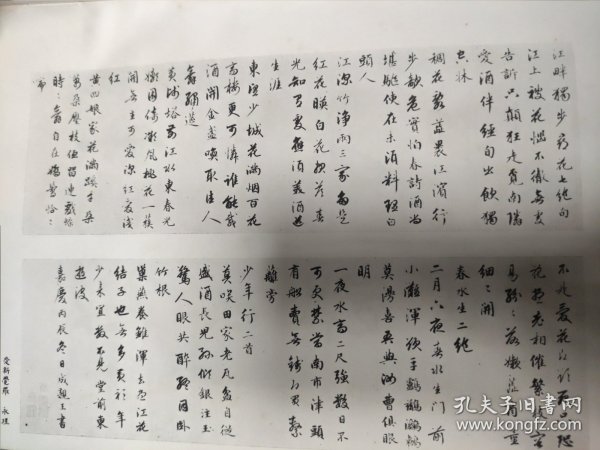 江畔獨步尋花七絕句
江上被花惱不徹無處
告訴只顛狂走覓南鄰
愛酒伴經旬出飲獨
空牀
稠花亂蕊裹江濱行
步欹危實怕春詩酒尚
堪驅使在未須料理白
頭人
江深竹靜兩三家多事
紅花映白花報答春
光知有處應須美酒送
生涯
東望少城花滿煙百花
高樓更可憐誰能載
酒開金盞喚取佳人
舞繡筵
黃師塔前江水東春光
懶困倚微風桃花一簇
開無主可愛深紅愛淺
紅
黃四娘家花滿蹊千朵
萬朵壓枝低留連戲蝶
時：舞自在嬌鶯恰：
啼
不是愛花即欲死只恐
花盡老相催繁枝容
易紛：落嫩蕊商量
細：開
春水生二絕
二月六夜春水生門前
小灘渾欲平鸕鶿鸂鶒
莫漫喜吾與汝曹俱眼
明
一夜水高二尺強數日不
可更禁當南市津頭
有船賣無錢即買繫
籬旁
少年行二首
莫笑田家老瓦盆自從
盛酒長兒孫傾銀注玉
驚人眼共醉終同臥
竹根
巢燕養雛渾去盡江花
結子也無多黃衫年
少來宜數不見堂前東
逝波
嘉慶丙辰冬日成親王書
愛新覺羅 永瑆
孔夫子旧书网
www.kongfz.com